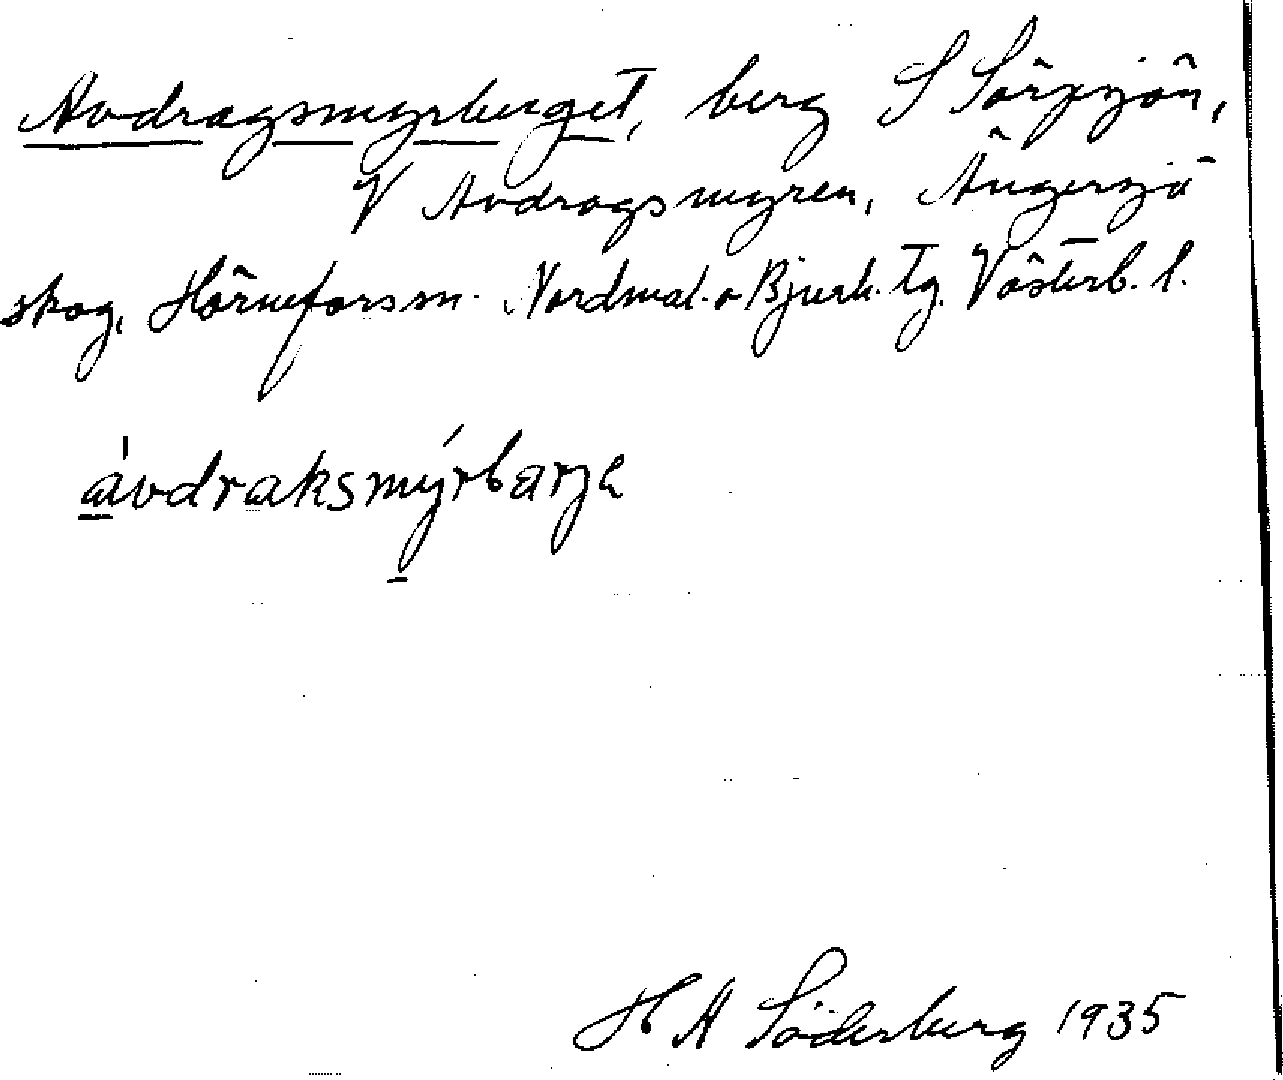 Avdragsmyrberget, berg S Sörsjön,
V Avdragsmyren, Ängersjö
skog, Hörneforsm. Nordmal. o Bjurh. tg. Västerb. l.
ávdraksmýrbarje
H A Söderberg 1935